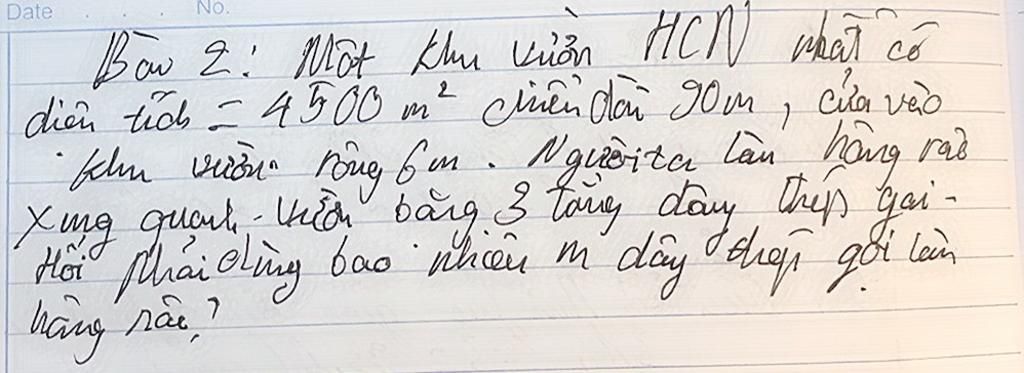 Date No.
Bài 2: Một khu vườn HCN nhất có
diên tích = 4500 m² chiều dài 90m, cửa vào
khu vườn rông 6m. Người ta làm hàng rào
xung quanh vườn bằng 3 tầng dây thép gai.
Hỏi phải dùng bao nhiêu m dây thép gai làm
hàng rào?